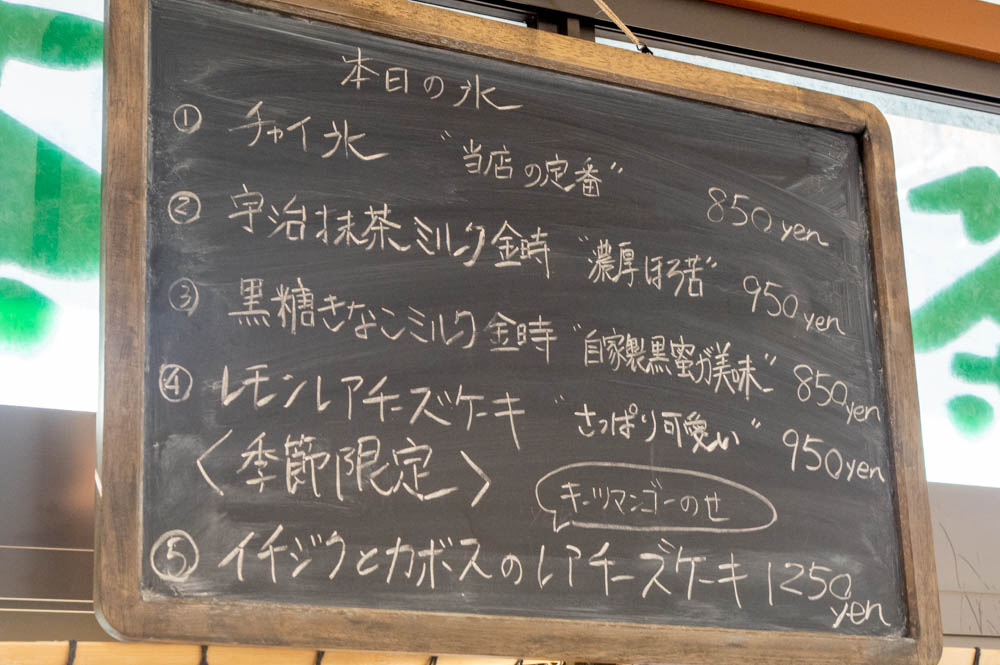 本日の氷
① チャイ氷 "当店の定番" 850yen
② 宇治抹茶ミルク金時 "濃厚ほろ苦" 950yen
③ 黒糖きなこミルク金時 "自家製黒蜜が美味" 850yen
④ レモンレアチーズケーキ "さっぱり可愛い" 950yen
〈季節限定〉
キーツマンゴーのせ
⑤ イチジクとカボスのレアチーズケーキ 1250yen